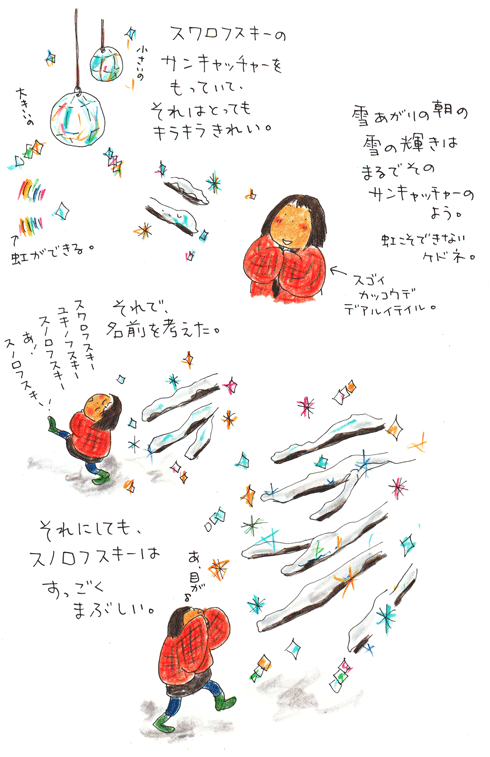 スワロフスキーの
サンキャッチャーを
もっていて、
それはとっても
キラキラきれい。
小さいの
大きいの
↑
虹ができる。
雪あがりの朝の
雪の輝きは
まるでその
サンキャッチャーの
よう。
虹こそできない
ケドネ。
← スゴイ
カッコウデ
デアルイテイル。
それで、
名前を考えた。
スワロフスキー
ユキノフスキー
スノロフスキー
あ!
スノロフスキー!
それにしても、
スノロフスキーは
すっごく
まぶしい。
あ、目が